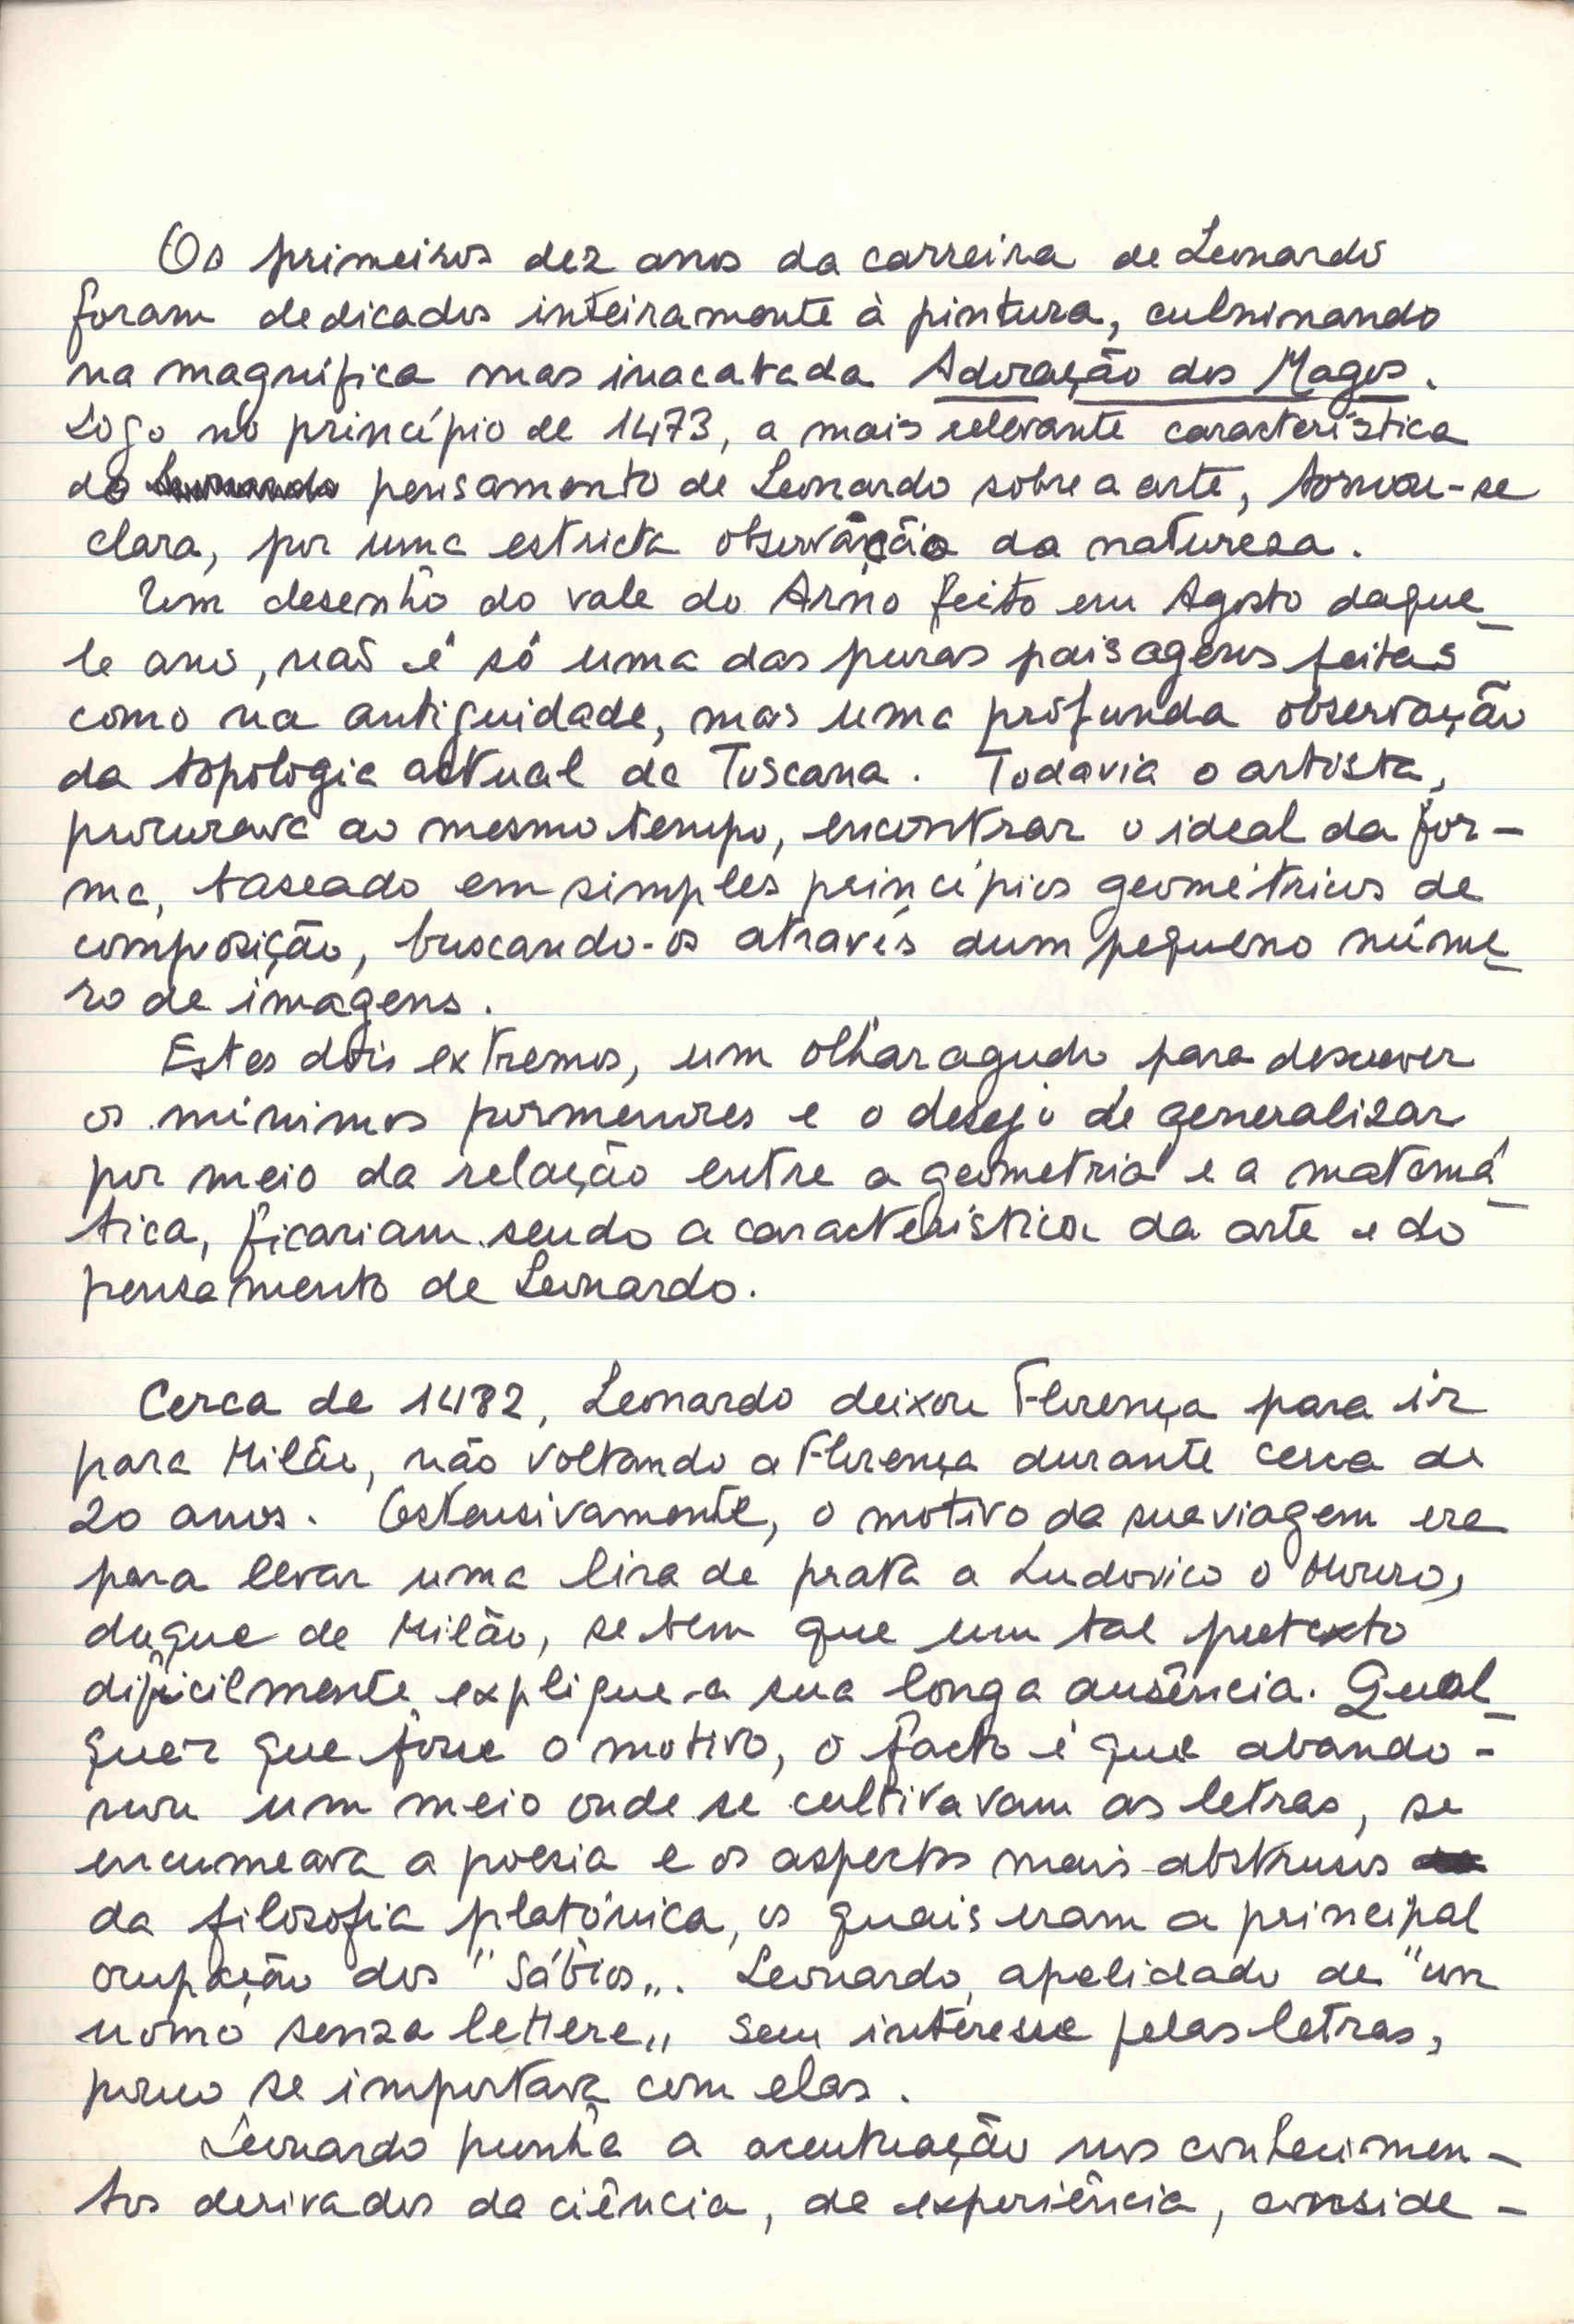 Os primeiros dez anos da carreira de Leonardo
foram dedicados inteiramente à pintura, culminando
na magnífica mas inacabada Adoração dos Magos.
Logo no princípio de 1473, a mais relevante característica
do pensamento de Leonardo sobre a arte, tornou-se
clara, por uma estricta observação da natureza.
Um desenho do vale do Arno feito em Agosto daque-
le ano, não é só uma das puras paisagens feitas
como na antiguidade, mas uma profunda observação
da topologia actual da Toscana. Todavia o artista,
procurava ao mesmo tempo, encontrar o ideal da for-
ma, baseado em simples princípios geométricos de
composição, buscando-os através dum pequeno núme-
ro de imagens.
Estes dois extremos, um olhar agudo para descrever
os mínimos pormenores e o desejo de generalizar
por meio da relação entre a geometria e a matemá-
tica, ficariam sendo a característica da arte e do
pensamento de Leonardo.
Cerca de 1482, Leonardo deixou Florença para ir
para Milão, não voltando a Florença durante cerca de
20 anos. Ostensivamente, o motivo da sua viagem era
para levar uma lira de prata a Ludovico o Mouro,
duque de Milão, se bem que um tal pretexto
dificilmente explique a sua longa ausência. Qual-
quer que fosse o motivo, o facto é que abando-
nou um meio onde se cultivavam as letras, se
encumeava a poesia e os aspectos mais abstrusos
da filosofia platónica, os quais eram a principal
ocupação dos "Sábios". Leonardo, apelidado de "un
uomo senza lettere" sem interesse pelas letras,
pouco se importava com elas.
Leonardo punha a acentuação nos conhecimen-
tos derivados da ciência, da experiência, conside-